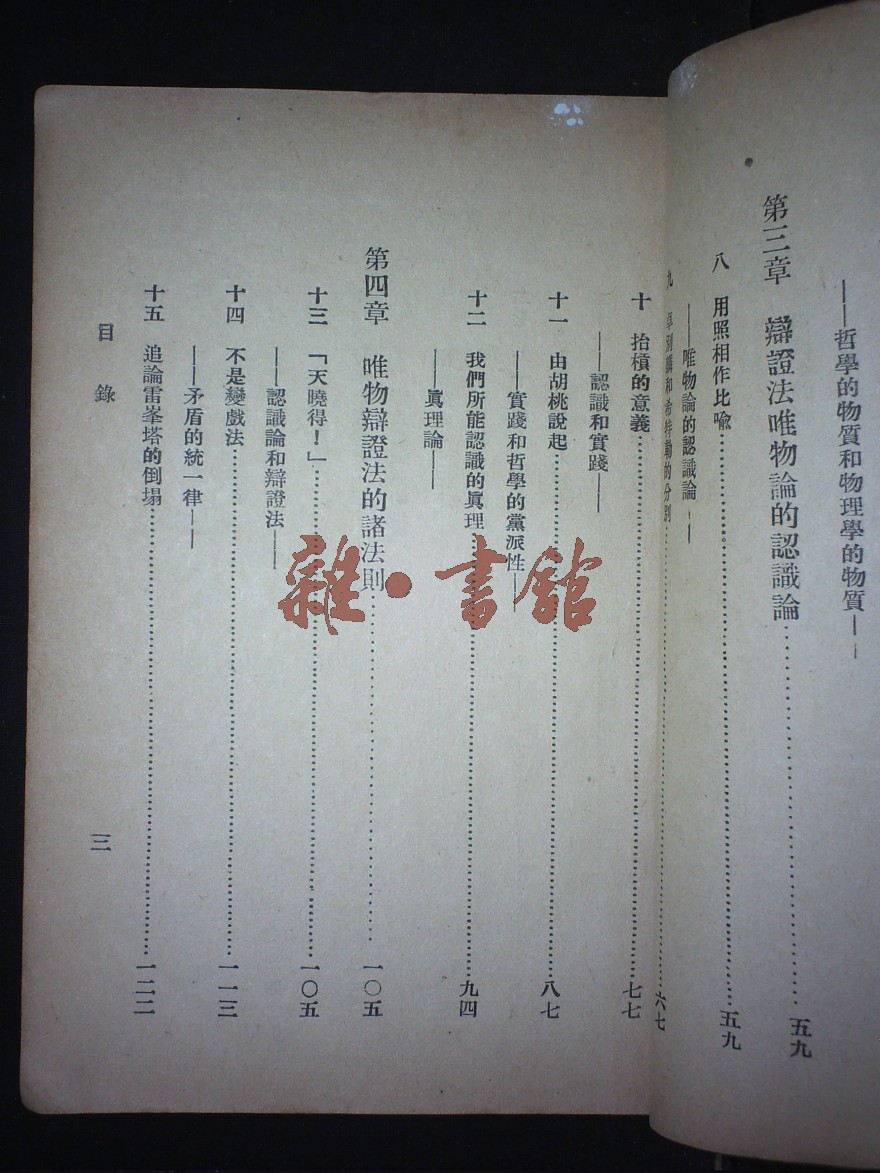 ——哲學的物質和物理學的物質——
第三章 辯證法唯物論的認識論……五九
八 用照相作比喩……五九
——唯物論的認識論——
九 卓別麟和希特勒的分別……六七
十 抬槓的意義……七七
——認識和實踐——
十一 由胡桃說起……八七
——實踐和哲學的黨派性——
十二 我們所能認識的眞理……九四
——眞理論——
第四章 唯物辯證法的諸法則……一〇五
十三 「天曉得！」……一〇五
——認識論和辯證法——
十四 不是變戲法……一一三
——矛盾的統一律——
十五 追論雷峯塔的倒塌……一二二
目錄
三
雜·書館